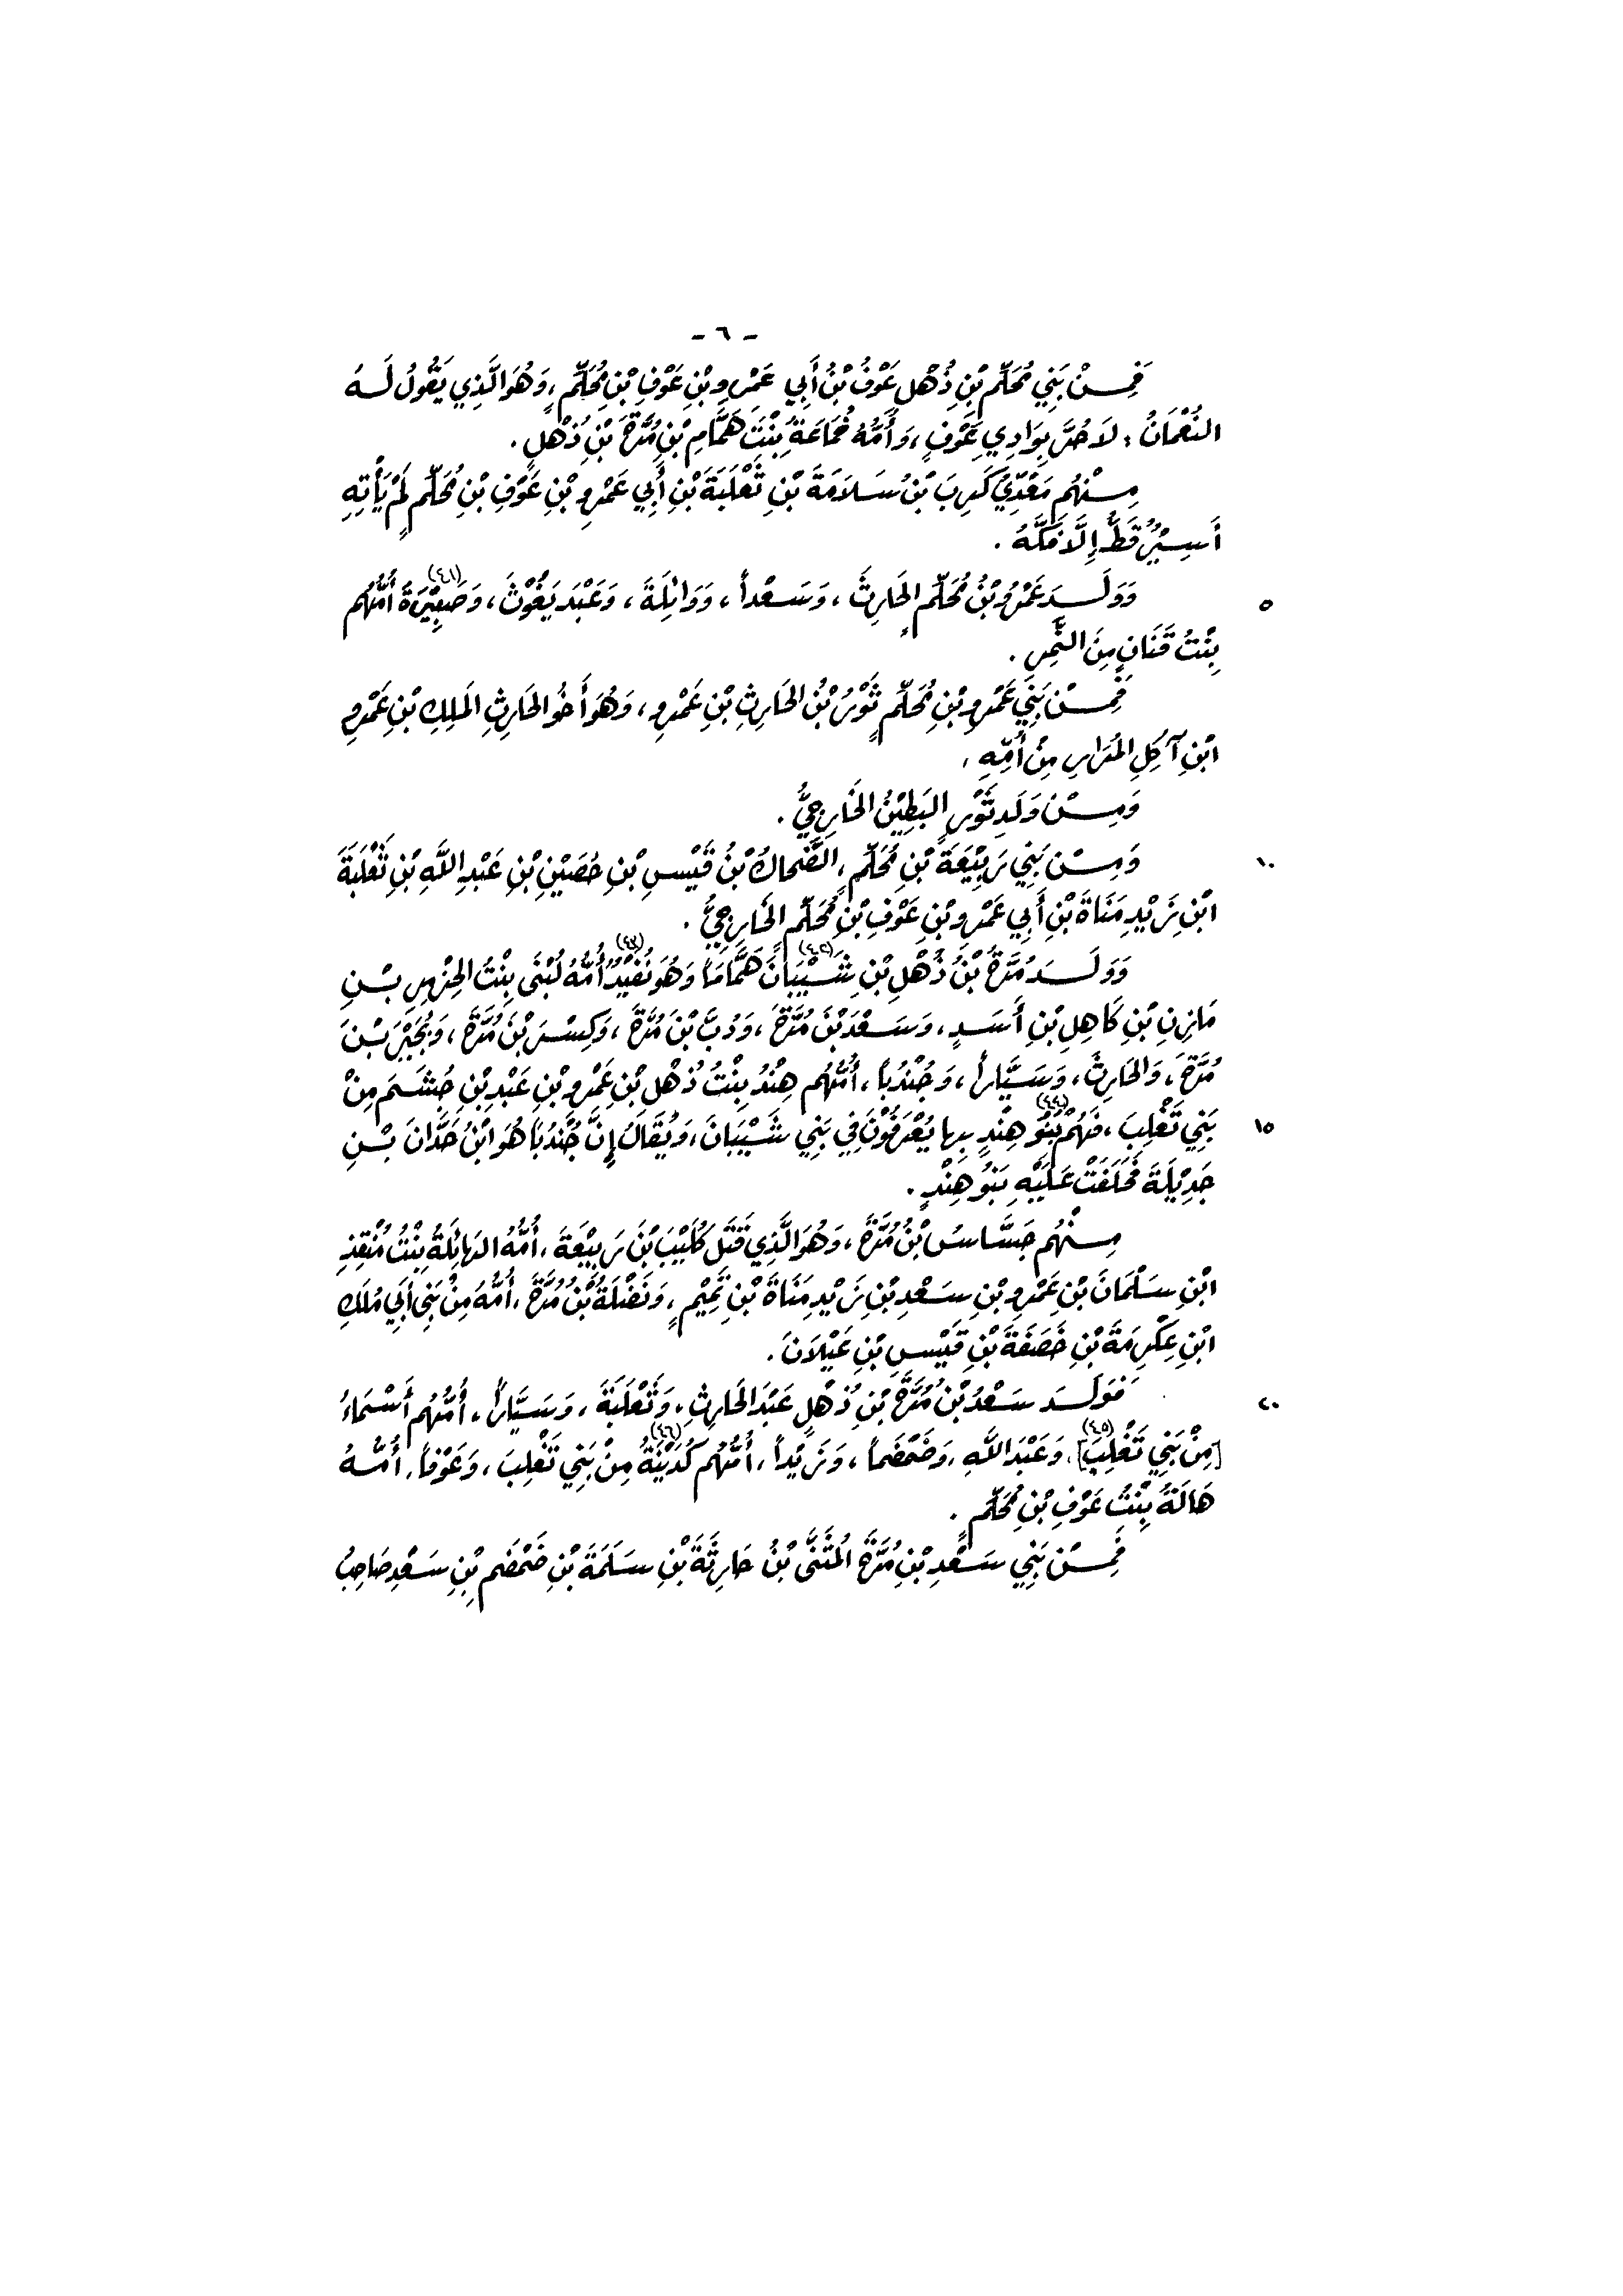 - ٦ -
فَمِنْ بَنِي مُحَلِّمِ بْنِ ذُهْلٍ عَوْفُ بْنُ أَبِي عَمْرِو بْنِ عَوْفِ بْنِ مُحَلِّمٍ، وَهُوَ الَّذِي يَقُولُ لَهُ
النُّعْمَانُ: لاَ حُرَّ بِوَادِي عَوْفٍ، وَأُمُّهُ خُمَاعَةُ بِنْتُ هَمَّامِ بْنِ مُرَّةَ بْنِ ذُهْلٍ.
مِنْهُم مَعْدِيْ كَرِبَ بْنُ سَلاَمَةَ بْنِ ثَعْلَبَةَ بْنِ أَبِي عَمْرِو بْنِ عَوْفِ بْنِ مُحَلِّمٍ لَمْ يَأْتِهِ
أَسِيْرٌ قَطُّ إِلَّا فَكَّهُ.
٥ وَوَلَدَ عَمْرُو بْنُ مُحَلِّمٍ الحَارِثَ، وَسَعْداً، وَوَائِلَةَ، وَعَبْدَ يَغُوْثَ، وَصَبِيْرَةَ (٤١) أُمُّهُم
بِنْتُ قَنَانٍ مِنَ النَّمِرِ.
فَمِنْ بَنِي عَمْرِو بْنِ مُحَلِّمٍ ثَوْرُ بْنُ الحَارِثِ بْنِ عَمْرٍو، وَهُوَ أَخُو الحَارِثِ المَلِكِ بْنِ عَمْرِو
ابْنِ آكِلِ المُرَارِ مِنْ أُمِّهِ،
وَمِنْ وَلَدِ ثَوْرٍ البَطِيْنُ الخَارِجِيُّ.
١٠ وَمِنْ بَنِي رَبِيْعَةَ بْنِ مُحَلِّمٍ، الضَّحَاكُ بْنُ قَيْسِ بْنِ حُصَيْنِ بْنِ عَبْدِ اللَّهِ بْنِ ثَعْلَبَةَ
ابْنِ زَيْدِ مَنَاةَ بْنِ أَبِي عَمْرِو بْنِ عَوْفِ بْنِ مُحَلِّمٍ الخَارِجِيُّ.
وَوَلَدَ مُرَّةُ بْنُ ذُهْلِ بْنِ شَيْبَانَ (٤٢) هَمَّاماً وَهُوَ نُفَيْدٌ (٤٣) أُمُّهُ لُبْنَى بِنْتُ الحِزْمِرِ بْنِ
مَازِنِ بْنِ كَاهِلِ بْنِ أَسَدٍ، وَسَعْدَ بْنَ مُرَّةَ، وَدُبَّ بْنَ مُرَّةَ، وَكِسْرَ بْنَ مُرَّةَ، وَبُجَيْرَ بْنَ
مُرَّةَ، وَالحَارِثَ، وَسَيَّاراً، وَجُنْدُباً، أُمُّهُم هِنْدُ بِنْتُ ذُهْلِ بْنِ عَمْرِو بْنِ عَبْدِ بْنِ جُشَمَ مِنْ
١٥ بَنِي تَغْلِبَ، فَهُمْ بَنُو (٤٤) هِنْدٍ بِهَا يُعْرَفُوْنَ فِي بَنِي شَيْبَانَ، وَيُقَالُ إِنَّ جُنْدُباً هُوَ ابْنُ حَدَّانَ بْنِ
جَدِيْلَةَ فَحَلَفَتْ عَلَيْهِ بَنُو هِنْدٍ.
مِنْهُم جَسَّاسُ بْنُ مُرَّةَ، وَهُوَ الَّذِي قَتَلَ كُلَيْبَ بْنَ رَبِيْعَةَ، أُمُّهُ الهَائِلَةُ بِنْتُ مُنْقِذِ
ابْنِ سَلْمَانَ بْنِ عَمْرِو بْنِ سَعْدِ بْنِ زَيْدِ مَنَاةَ بْنِ تَمِيْمٍ، وَنَضْلَةُ بْنُ مُرَّةَ، أُمُّهُ مِنْ بَنِي أَبِي مُلَكِ
ابْنِ عِكْرِمَةَ بْنِ خَصَفَةَ بْنِ قَيْسِ بْنِ عَيْلاَنَ.
٢٠ فَوَلَدَ سَعْدُ بْنُ مُرَّةَ بْنِ ذُهْلٍ عَبْدَ الحَارِثِ، وَثَعْلَبَةَ، وَسَيَّاراً، أُمُّهُم أَسْمَاءُ
[مِنْ بَنِي تَغْلِبَ] (٤٥)، وَعَبْدَ اللَّهِ، وَضَمْضَماً، وَزَيْداً، أُمُّهُم كُدَيْنَةُ (٤٦) مِنْ بَنِي تَغْلِبَ، وَعَوْفاً، أُمُّهُ
هَالَةُ بِنْتُ عَوْفِ بْنِ مُحَلِّمٍ.
فَمِنْ بَنِي سَعْدِ بْنِ مُرَّةَ المُثَنَّى بْنُ حَارِثَةَ بْنِ سَلَمَةَ بْنِ ضَمْضَمِ بْنِ سَعْدٍ صَاحِبُ